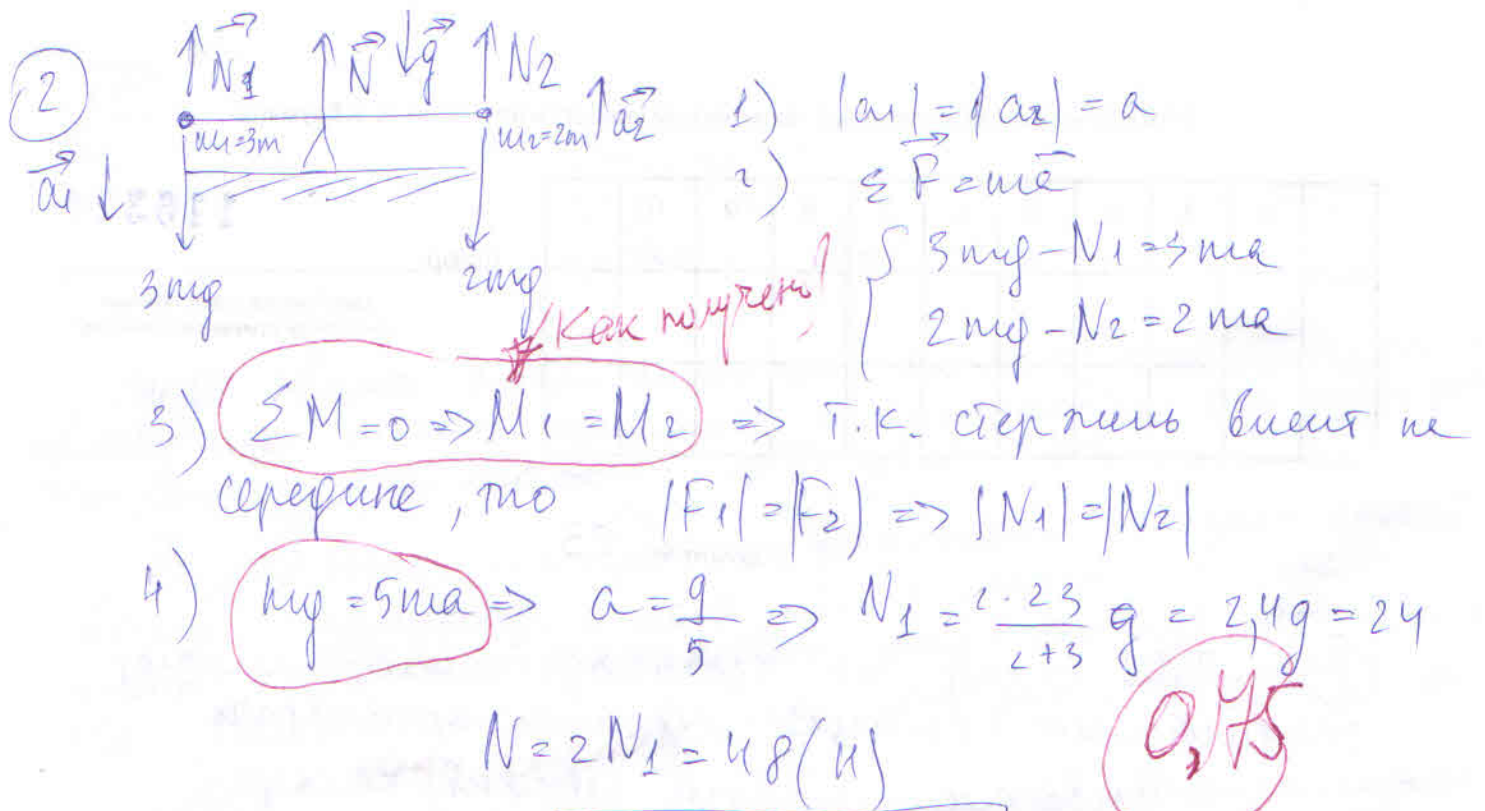 2
N1 N g N2
m1=3m m2=2m a2
a1
3mg 2mg
1) |a1| = |a2| = a
2) ΣF = ma
3mg - N1 = 3ma
2mg - N2 = 2ma
Как получено?
3) ΣM = 0 => M1 = M2 => т.к. стержень висит на
середине, то |F1| = |F2| => |N1| = |N2|
4) mg = 5ma => a = g/5 => N1 = 2·23/2+3 g = 2,4g = 24
N = 2N1 = 48 (Н)
0,75